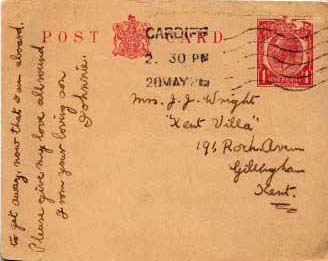 POST CARD
CARDIFF
2. 30 PM
20 MAY
Mrs. J. J. Wright
"Kent Villa"
Gillingham
Kent.
to get away, now that I am aboard.
Please give my love all round
from your loving son
Johnnie.